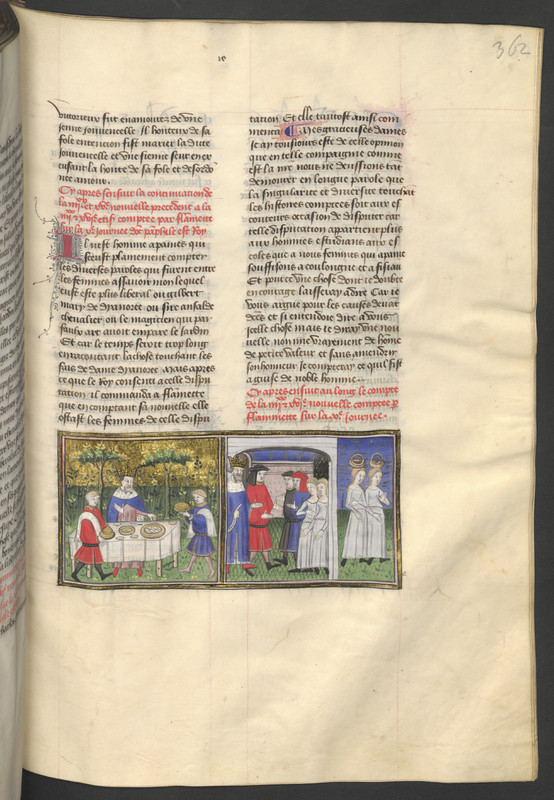 362
victorieux fut enamoure de une
jeune jouvencelle Il honteux de sa
fole entencon fist marier la dite
jouvencelle et une sienne seur en ex
cusant la honte de sa fole et desordo
nee amour.
Cy apres sensuit la continuation de
la et nouvelle precedent a la
et comptee par flamette
sur la journee dont pamphile est Roy
Il nest homme apaines qui
sceust plainement compter
les diverses paroles qui furent entre
les femmes assavoir mon lequel
eust este plus liberal ou gilbert
mary de dyanore ou sire ansalde
chevalier ou le magicien qui par
faulx art avoit empare le jardin
Et car le temps seroit trop long
en racontant la chose touchant les
fais de dame dyanore Mais apres
ce que le Roy consenti a celle dispu
tation il commanda a flamette
que en comptant sa nouvelle elle
ostast les femmes de celle dispu
tation Et elle tantost ainsi com
menca Mes gracieuses dames
je ay tousiours este de celle opinion
que en telle compaignie comme
est la nre nous ne deussions tant
demourer en longue parole que
la singularite et diversite touchant
les histoires comptees soit aux es
couteurs occasion de disputer car
celle disputation appartient plus
aux hommes estudians aux es
coles que a nous femmes qui a paine
souffisons a coulongne et a fusiau
Et pource une chose dont je doubte
en courage laisseray a dire Car je
vous argue pour les causes devant
dictes et si entendoie dire a vous
icelle chose mais je diray une nou
velle non mie vrayement de home
de petite valeur et sans amendrir
son honneur Je compteray ce quil fist
a guise de noble homme
Cy apres ensuit au long le compte
de la nouvelle comptee par
flammette sur la journee.